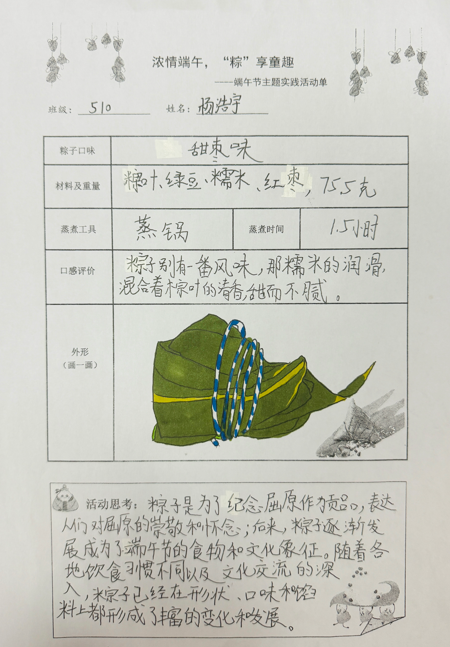 浓情端午，“粽”享童趣
——端午节主题实践活动单
班级：510 姓名：杨浩宇
粽子口味 甜枣味
材料及重量 粽叶、绿豆、糯米、红枣，755克
蒸煮工具 蒸锅 蒸煮时间 1.5小时
口感评价 粽子别有一番风味，那糯米的润滑，
混合着粽叶的清香，甜而不腻。
外形
（画一画）
活动思考：粽子是为了纪念屈原作为贡品，表达
人们对屈原的崇敬和怀念；后来，粽子逐渐发
展成为了端午节的食物和文化象征。随着各
地饮食习惯不同以及文化交流的深
入，粽子已经在形状、口味和馅
料上都形成了丰富的变化和发展。